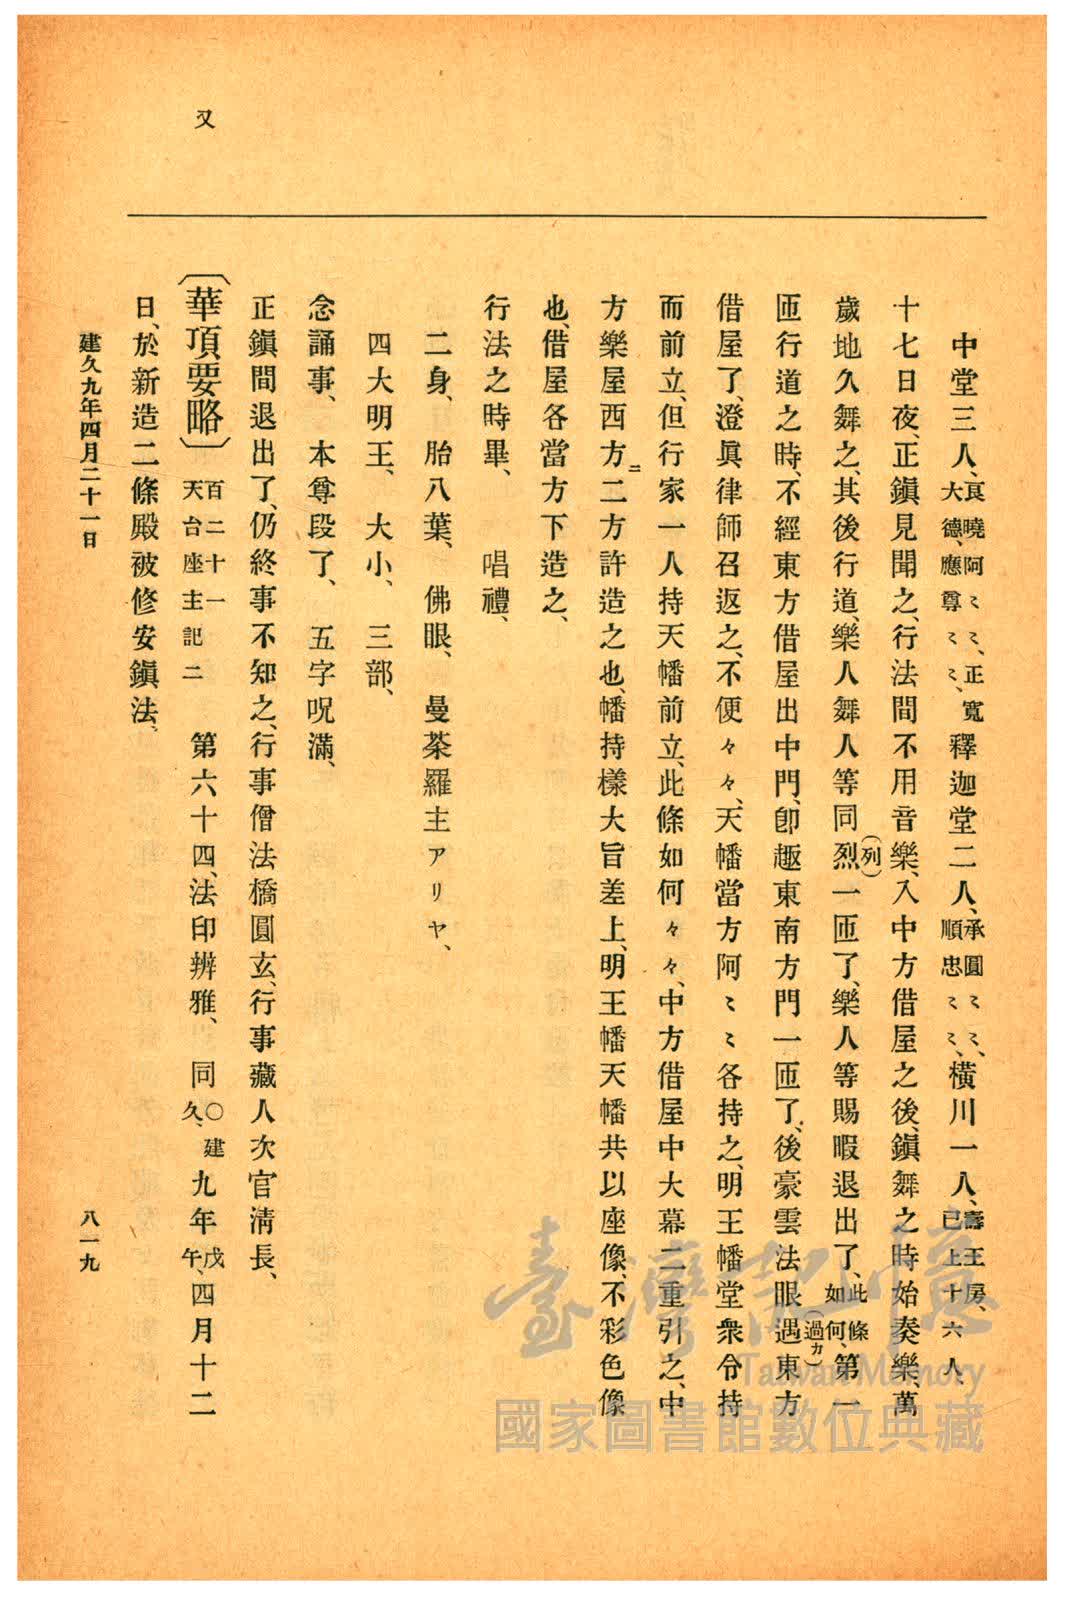 又
中堂三人、良曉阿〻〻、正寬大德、應尊〻〻、釋迦堂二人、承圓〻〻、順忠〻〻、橫川一人、壽王房、已上十六人、
十七日夜、正鎭見聞之、行法間不用音樂、入中方借屋之後、鎭舞之時始奏樂、萬
歲地久舞之、其後行道、樂人舞人等同烈(列)一匝了、樂人等賜暇退出了、此條如何、第一
匝行道之時、不經東方借屋出中門、卽趣東南方門一匝了、後豪雲法眼遇(過カ)東方
借屋了、澄眞律師召返之、不便々々、天幡當方阿〻〻各持之、明王幡堂衆令持
而前立、但行家一人持天幡前立、此條如何々々、中方借屋中大幕二重引之、中
方樂屋西方ニ二方許造之也、幡持樣大旨差上、明王幡天幡共以座像、不彩色像
也、借屋各當方下造之、
行法之時畢、　唱禮、
二身、　胎八葉、　佛眼、　曼荼羅主アリヤ、
四大明王、　大小、　三部、
念誦事、　本尊段了、　五字呪滿、
正鎭間退出了、仍終事不知之、行事僧法橋圓玄、行事藏人次官淸長、
〔華頂要略〕百二十一天台座主記二　第六十四、法印辨雅、　同〇建久、九年戊午、四月十二
日、於新造二條殿被修安鎭法、
建久九年四月二十一日
八一九
臺灣記憶
Taiwan Memory
國家圖書館數位典藏